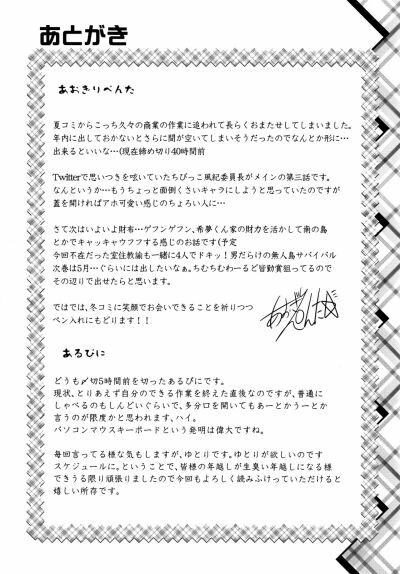 あとがき
あおきりぺんた
夏コミからこっち久々の商業の作業に追われて長らくおまたせしてしまいました。
年内に出しておかないとさらに間が空いてしまいそうだったのでなんとか形に…
出来るといいな…(現在締め切り40時間前
Twitterで思いつきを呟いていたちびっこ風紀委員長がメインの第三話です。
なんというか…もうちょっと面倒くさいキャラにしようと思っていたのですが
蓋を開ければアホ可愛い感じのちょろい人に…
さて次はいよいよ財布…ゲフンゲフン、希夢くん家の財力を活かして南の島
とかでキャッキャウフフする感じのお話です(予定
今回不在だった室住教諭も一緒に4人でドキッ！男だらけの無人島サバイバル
次巻は5月…ぐらいには出したいなぁ。ちむちむわーるど皆勤賞狙ってるので
その辺りで出せたらと思います。
ではでは、冬コミに笑顔でお会いできることを祈りつつ
ペン入れにもどります！！
あるびに
どうも〆切5時間前を切ったあるびにです。
現状、とりあえず自分のできる作業を終えた直後なのですが、普通に
しゃべるのもしんどいぐらいで、多分口を開いてもあーとかうーとか
言うのが限度かと思われます、ハイ。
パソコンマウスキーボードという発明は偉大ですね。
毎回言ってる様な気もしますが、ゆとりです。ゆとりが欲しいのです
スケジュールに。ということで、皆様の年越しが生臭い年越しになる様
できうる限り頑張りましたので今回もよろしく読みふけっていただけると
嬉しい所存です。